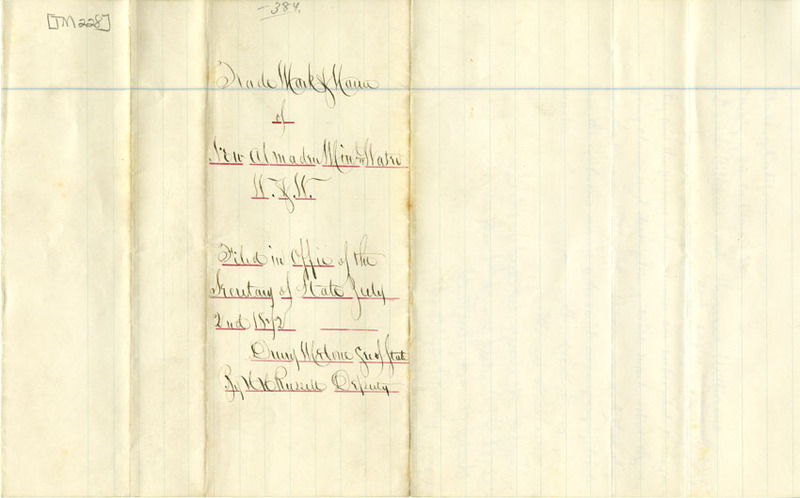 [TM 228]
384.
Trade Mark & Name
of
New Almaden Min Water
W. & W.
Filed in Office of the
Secretary of State July
2nd 1872
Drury Melone Sec of State
By Deputy